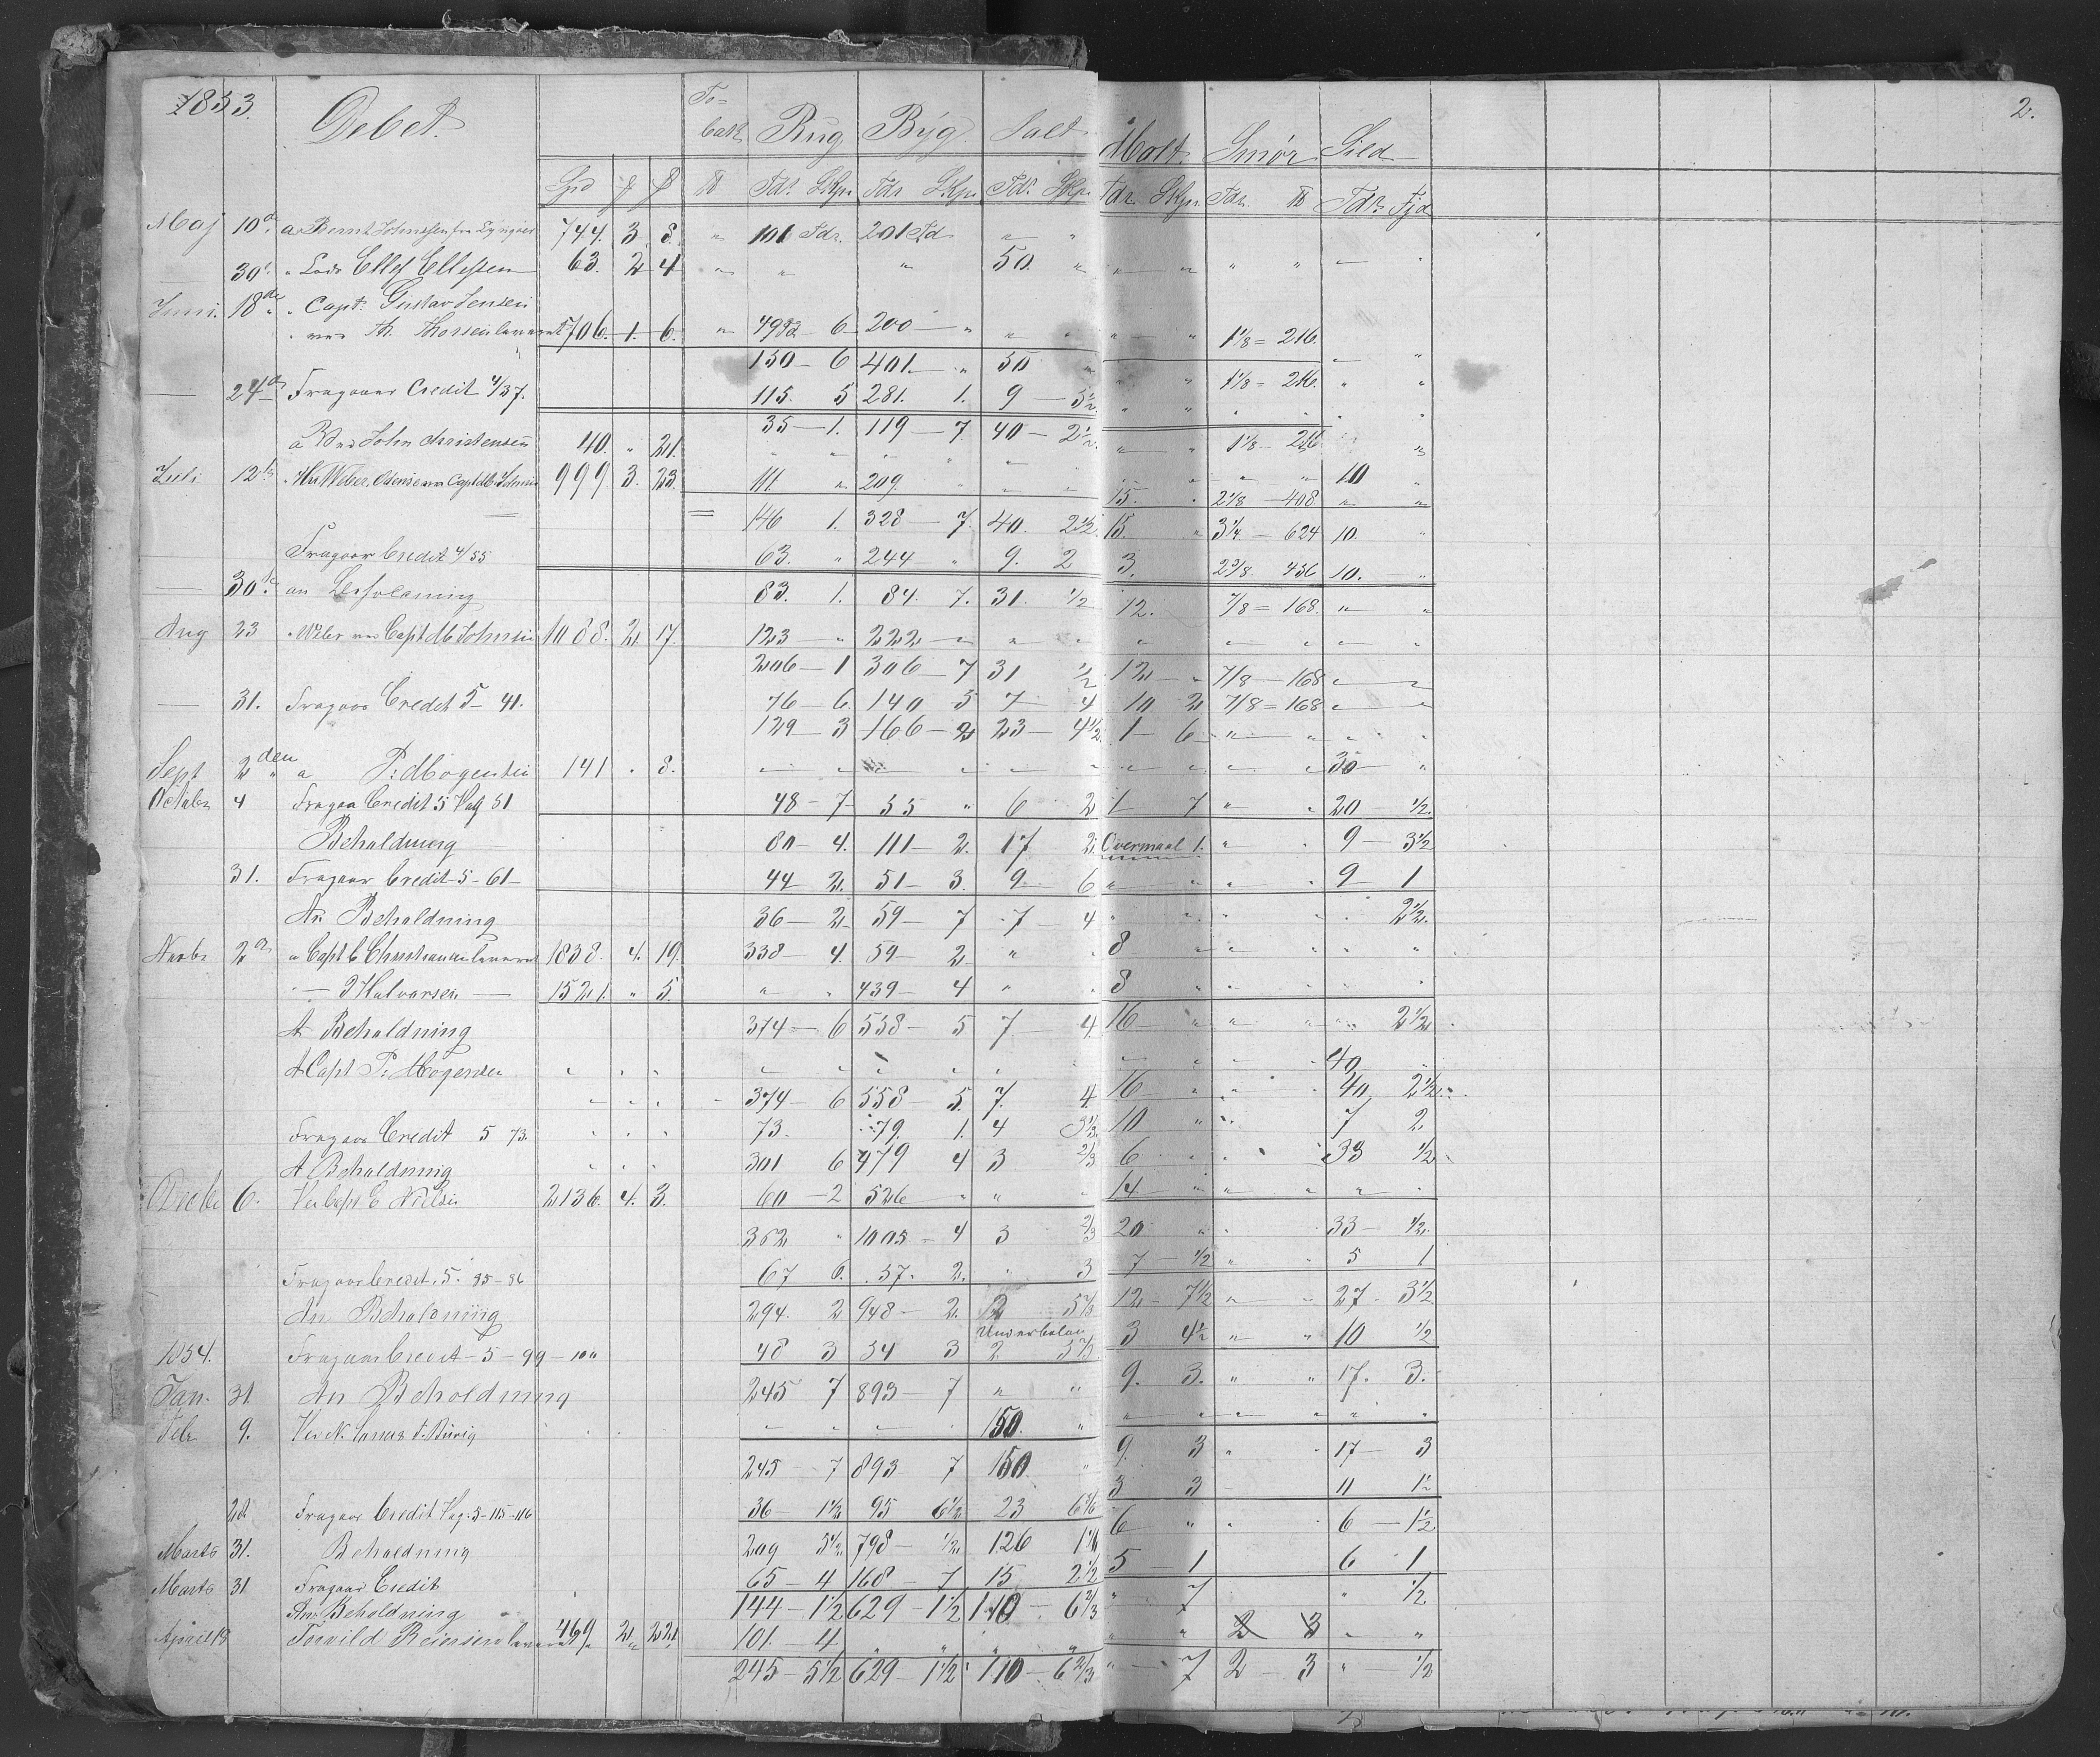 1853. Debet. To= bak Rug Byg Salt Malt Smør Sild 2.
Spd ℔ Tdr. Skpr. Tdr Skpr. Tdr. Skpr. Tdr Skpr. Tdr. ℔ Tdr. Fjd
Maj 10de a Bernt 744. 3 8. " 101 Tdr. 201 Td " "
30te " Lods Ellef Ellefsen 63. 2 4 " " " 50. " " " " " " "
Juni. 18de " Capt. Gustav Jensen
706. 1. 6. " 6 200 " " " " " 1 1/8 = 216.
150 - 6 401. " 50 " " " 1 1/8 = 216. " "
24de Fragaaer Credit 4/37. 115. 5 281. 1. 9 - 5 1/2. " " " " "
35 - 1. 119 - 7 40 - 2 1/2. " " 1 1/8 - 216 " "
a John Christensen 40. " 21. " " " " " " " " " " 10 "
Juli 12te 999. 3. 23. 111. " 209. " " " 15. " 2 1/8 - 408 " "
146 1. 328 - 7. 40. 2 1/2. 15. " 3 1/4 - 624 10. "
Fragaar Credit 4/55 63. " 244 - " 9. 2 3. 2 3/8. 456 10. "
30te an Beholdning 83. 1. 84. 7. 31. 1/2 12. 7/8 = 168. " "
Aug 23 Capt M Johnsen 1088. 2 17. 123 - " 222 - " " " " " " " " "
206 - 1 306 - 7 31 1/2 12 - " 7/8 - 168 " "
31. Fragaar Credit 5 - 41. 76 - 6. 140 5 7 4 10 2 7/8 = 168 " "
129 - 3 166 - 2 23 - 4 1/2. 1 - 6 " " " "
Sept 2den a P: Mogensen 141 " 8. " " " " " " " " " " 30 "
Octobr 4 Fragaa Credit 5 Pag 51 48 - 7 55 " 6 2 1 7 " " 20 - 1/2.
Beholdning 80 - 4. 111 - 2. 17 2. Overmaal 1. " " 9 - 3 1/2
31. Fragaar Credit - 5 - 61 - 44 2. 51 - 3. 9. 6 " " " " 9 1
An Beholdning 36 - 2 59 - 7 7 4 " " " " " 2 1/2.
Novbr 2den a Capt C Christiansen leveret 1838. 4. 19. 338 - 4. 59 - 2 " " 8 " " " " "
" - Halvorsen - 1521. " 5. " " 439 - 4 " " 8 " " " " "
A Beholdning 374 - 6 558 - 5 7 4. 16 " " " " 2 1/2
A Capt P: Mogensen " " " " " " " " " " " " " 40
" " " 374 - 6 558 - 5. 7. 4. 16 " " " 40 2 1/2.
Fragaar Credit 5 73. " " " 73. 79. 1. 4 3 1/3. 10 " " 7 2
A Beholdning " " " 301 6 479 4 3 2/3 6 " " " 33 1/2.
Decbr 6. Ver Capt C Nielsen 2136. 4. 3. 60 - 2 526 " " " 14 " " " " "
362 " 1005 - 4 3 2/3 20 " " " 33 - 1/2.
Fragaar Credit. 5. 85 - 86 67 6. 57. 2. " 3 7 - 1/2 " " 5 1
An Beholdning 294. 2 948 - 2. 2 5 1/3 12 - 7 1/2 " " 27 - 3 1/2
Underbalan
1854. Fragaar Credit - 5 - 99 - 100 48 3 54 3 2. 5 1/3 3 4 1/2 " " 10 1/2
Jan. 31. An Beholdning 245 7 893 - 7 " " 9. 3. " " 17. 3.
Febr 9. " " " " 150. " " " " " " "
245 - 7 893 7 150. " 9. 3 " " 17 - 3
3 3 - 11 1 1/2
28 Fragaar Credit Pag. 5 - 115 - 116 36 - 1 1/2 95 6 1/2 23 6 5/6 6 " " 6 - 1 1/2
Marts 31. Beholdning 209 5 1/2. 798 - 1/2. 126 1 1/6 5 - 1 6 1
Marts 31 Fragaar Credit 65 - 4 168 - 7 15 2 1/2 " 7 " 1/2
An Beholdning 144 - 1 1/2 629 - 1 1/2 110 - 6 2/3
April 18 Torvild Reiersen leveret 469. 2. 22. 101. - 4 " " " " " " 2 3 " "
245 - 5 1/2 629 - 1 1/2 110 - 6 2/3 " - 7 2 - 3 " - 1/2